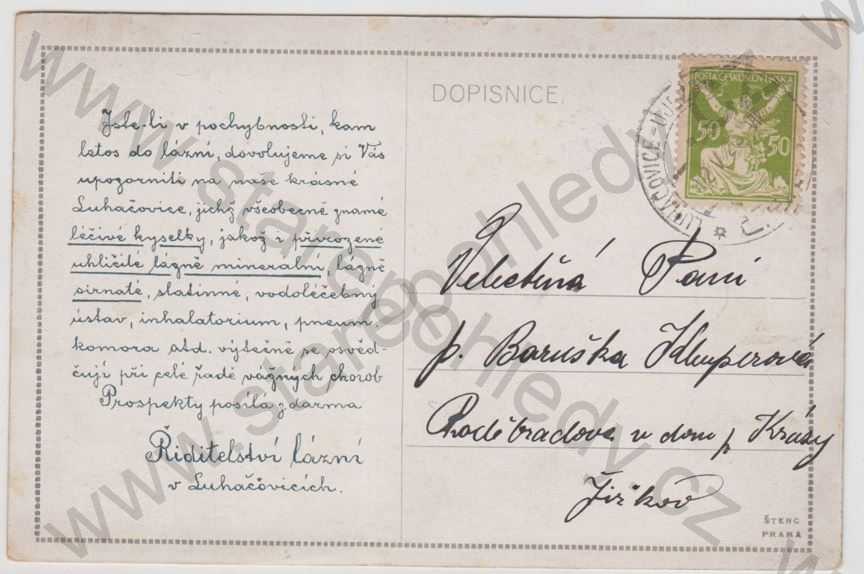 Jste-li v pochybnosti, kam
letos do lázní, dovolujeme si Vás
upozorniti na naše krásné
Luhačovice, jichž všeobecně známé
léčivé kyselky, jakož i přirozené
uhličité lázně minerální, lázně
sirnaté, slatinné, vodoléčebný
ústav, inhalatorium, pneum.
komora atd. výtečně se osvěd-
čují při celé řadě vážných chorob
Prospekty posílá zdarma
Ředitelství lázní
v Luhačovicích.
DOPISNICE
POŠTA ČESKOSLOVENSKÁ
50 50
LUHAČOVICE
Velectěná Paní
p. Baruška Klumperová
Poděbradova v dom p. Krásy
Žižkov
ŠTENC
PRAHA
www.starepohledy.cz